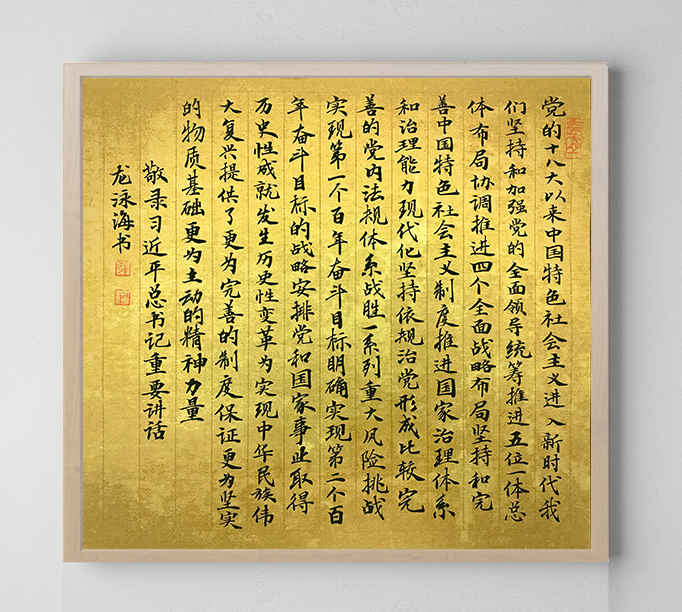 党的十八大以来中国特色社会主义进入新时代我
们坚持和加强党的全面领导统筹推进五位一体总
体布局协调推进四个全面战略布局坚持和完
善中国特色社会主义制度推进国家治理体系
和治理能力现代化坚持依规治党形成比较完
善的党内法规体系战胜一系列重大风险挑战
实现第一个百年奋斗目标明确实现第二个百
年奋斗目标的战略安排党和国家事业取得
历史性成就发生历史性变革为实现中华民族伟
大复兴提供了更为完善的制度保证更为坚实
的物质基础更为主动的精神力量
敬录习近平总书记重要讲话
龙泳海书